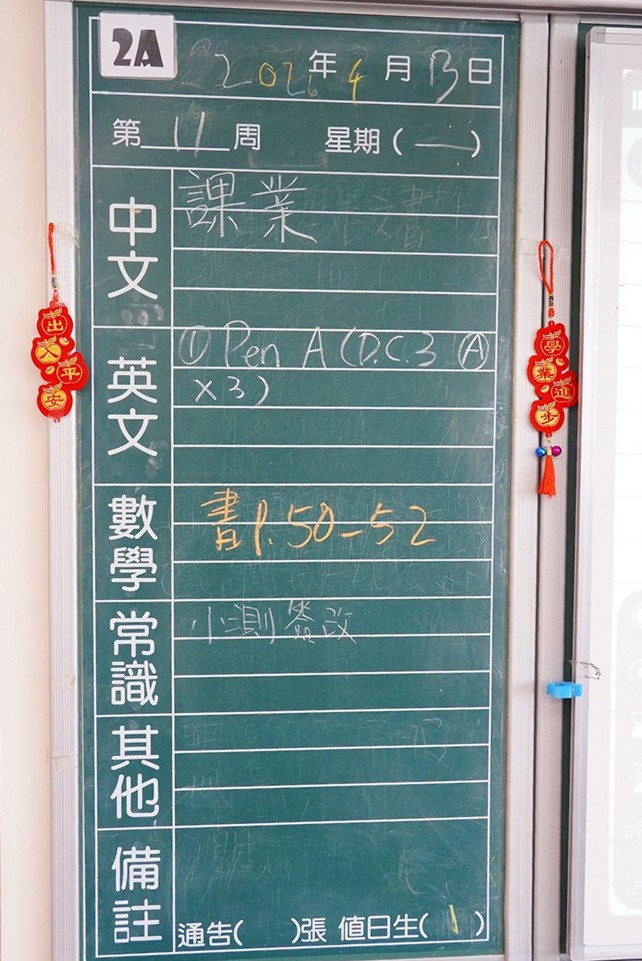 2A
2026年4月13日
第 11 周 星期(一)
中文
課業
英文
① Pen A (D.C.3 Ⓐ
×3)
數學
書P.50-52
常識
小測簽改
其他
備註
通告( )張 值日生(1)
出入平安
學業進步